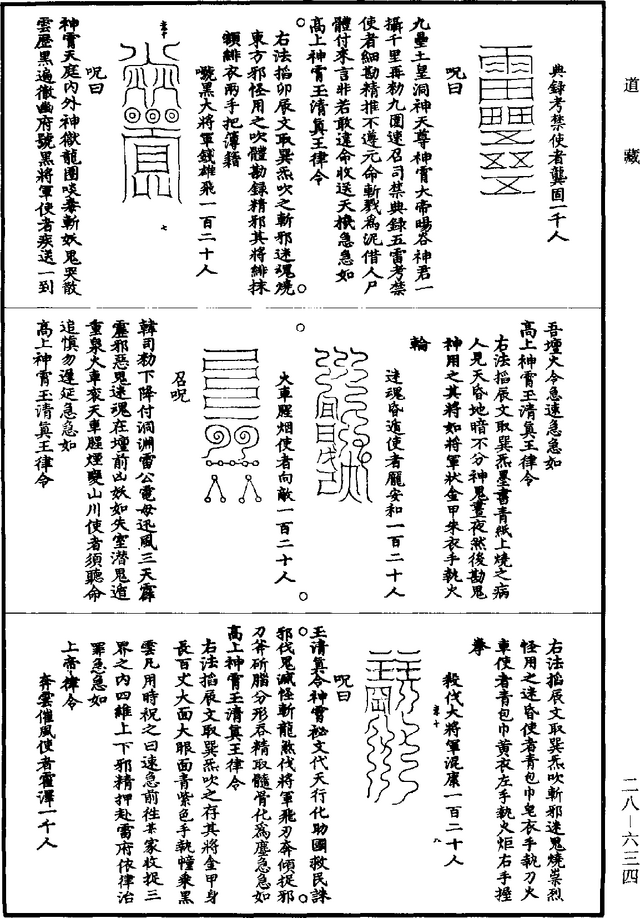 道藏
典錄考禁使者龔固一千人
呪曰
九壘土皇洞神天尊神霄大帝暘谷神君一
攝千里再勑九圍速召司禁典錄五雷考禁
使者細勘精推不遵元命斬戮為泥借人尸
體付來言非若敢違命收送天擑急急如
高上神霄玉清真王律令
右法掐卯辰文取巽炁吹之斬邪迷魂燒
東方邪怪用之吹體勘錄精邪其將緋抹
額緋衣兩手把簿籍
號黑大將軍錢雄飛一百二十人
呪曰
神霄天庭內外神獄龍圖啖毒斬妖鬼哭散
雲歷黑遍徹幽府號黑將軍使者疾送一到
吾壇火令急速急急如
高上神霄玉清真王律令
右法掐辰文取巽炁墨書青紙上燒之病
人見天昏地暗不分神鬼晝夜然後勘鬼
神用之其將如將軍狀金甲朱衣手執火
輪
迷魂昏遁使者龐安和一百二十人
火車腥烟使者向敵一百二十人
召呪
韓司勑下降付洞淵雷公電母迅風三天霹
靂邪惡鬼迷魂在壇前凶妖如失室潜鬼遁
重泉火車衮天車腥煙變山川使者須聽命
追慎勿遲延急急如
高上神霄玉清真王律令
右法掐辰文取巽炁吹斬邪迷鬼燒祟烈
怪用之迷昏使者青包巾皂衣手執刀火
車使者青包巾黃衣左手執火炬右手握
拳
殺伐大將軍混康一百二十人
呪曰
玉清真令神霄祕文代天行化助國救民誅
邪伐鬼滅怪斬龍煞伐將軍飛刃奔傾捉邪
刀斧斫腦分形吞精取髓骨化為塵急急如
高上神霄玉清真王律令
右法掐辰文取巽炁吹之存其將金甲身
長百丈大面大眼面青紫色手執幢乘黑
雲凡用時祝之曰速急前徃某家收捉三
界之內四維上下邪精押赴雷府依律治
罪急急如
上帝律令
奔雲催風使者霍澤一千人
二八—六三四